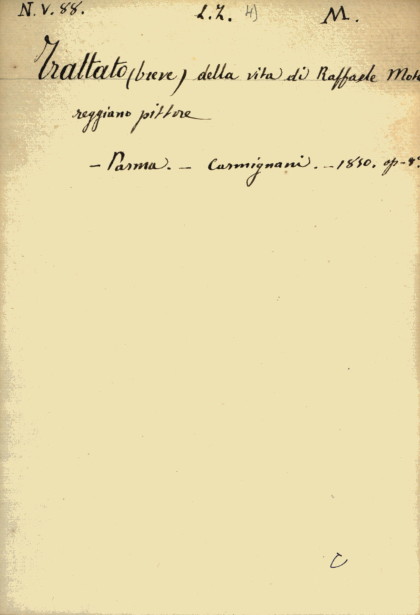 N.V.88. L.Z. 4) M.
Trattato (breve) della vita di Raffaele Mot
reggiano pittore
- Parma. - Carmignani. - 1850. op-8°
C